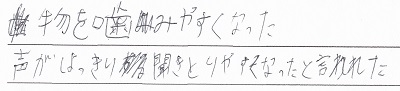 物を噛みやすくなった
声がはっきり聞きとりやすくなったと言われた